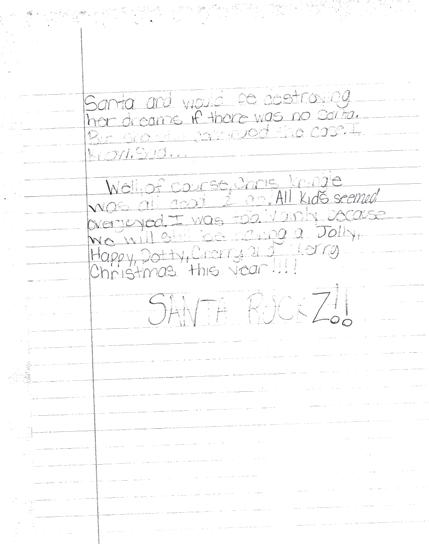 Santa and would be destroying
her dreams if there was no Santa.
the case. I
know. Sad...
Well, of course, Chris Kringle
was all good. All kids seemed
overjoyed. I was too. Mainly because
we will still be having a Jolly,
Happy, Dotty, Cherry and Merry
Christmas this year!!!!
SANTA ROCKZ!!